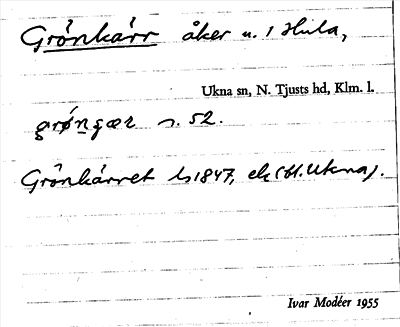 Grönkärr åker u. 1 Hula,
Ukna sn, N. Tjusts hd, Klm. l.
grǿngær s. 52.
Grönkärret ls 1847, ek (bl. Ukna).
Ivar Modéer 1955